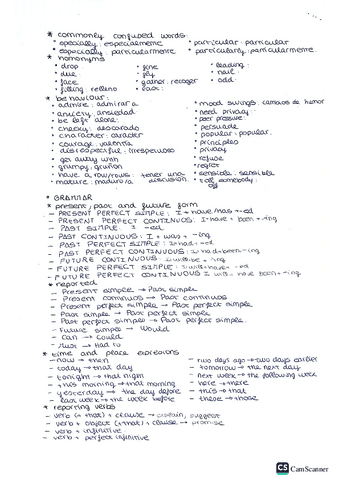 * commonly confused words:
* specially: especialmente * particular: particular
* especially: particularmente * particularly: particularmente.
* homonyms
• drop • fine • leading:
• due: • fly • nail:
• face • gather: recoger • odd:
• filling: relleno • last:
* behaviour:
• admire: admirar a • mood swings: cambios de humor
• anxiety: ansiedad • need privacy:
• be left alone: • peer pressure:
• cheeky: descarado • persuade
• character: caracter • popular: popular.
• courage: valentia • principles
• disrespectful: irrespetuoso • privacy
• get away with • refuse
• grumpy: gruñon • regret
• have a row/rows: tener una discusion. • sensible: sensible
• mature: maduro/a • tell somebody off
* GRAMMAR
* present, past and future form
- PRESENT PERFECT SIMPLE: I + have/has + -ed
- PRESENT PERFECT CONTINUOUS: I + have + been + -ing
- PAST SIMPLE: I -ed
- PAST CONTINUOUS: I + was + -ing
- PAST PERFECT SIMPLE: I + had + -ed
- PAST PERFECT CONTINUOUS: I + had + been + -ing
- FUTURE CONTINUOUS: I + will + be + -ing
- FUTURE PERFECT SIMPLE: I + will + have + -ed
- FUTURE PERFECT CONTINUOUS: I will + have + been + -ing
* reported
- Present simple → Past simple
- Present continuos → Past continuos
- Present perfect simple → Past perfect simple
- Past simple → Past perfect simple
- Past perfect simple → Past perfect simple.
- Future simple → Would
- Can → Could
- Must → Had to
* time and place expressions
- now → then - two days ago → two days earlier
- today → that day - tomorrow → the next day
- tonight → that night - next week → the following week
- this morning → that morning - here → there
- yesterday → the day before - this → that
- last week → the week before - these → those
* reporting verbs
- verb (+ that) + clause → explain, suggest
- verb + object (+that) + clause → promise
- verb + infinitive
- verb + perfect infinitive
CS CamScanner